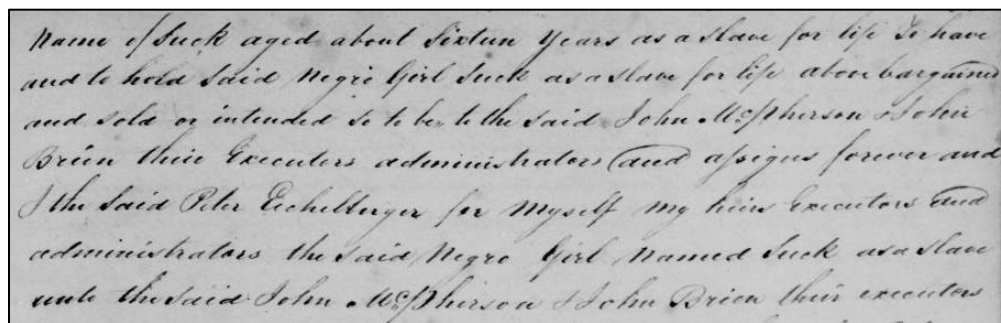 Name of Suck aged about Sixteen Years as a slave for life To have
and to hold said Negro Girl Suck as a slave for life above bargained
and sold or intended so to be, to the said John McPherson & John
Brien their Executors administrators and assigns forever and
I the said Peter Eichelberger for myself my heirs Executors and
administrators the said Negro Girl Named Suck as a slave
unto the said John McPherson & John Brien their executors